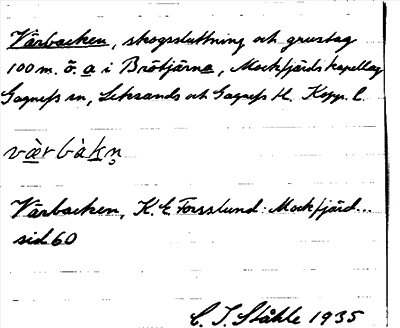 Vårbacken, skogssluttning och grustag
100 m. ö. a i Brötjärna, Mockfjärds kapellag
Gagnefs sn, Leksands och Gagnefs tl. Kopp. l.
vær bàkn̥
Vårbacken, K. E Forsslund: Mockfjärd...
sid 60
C. I. Ståhle 1935